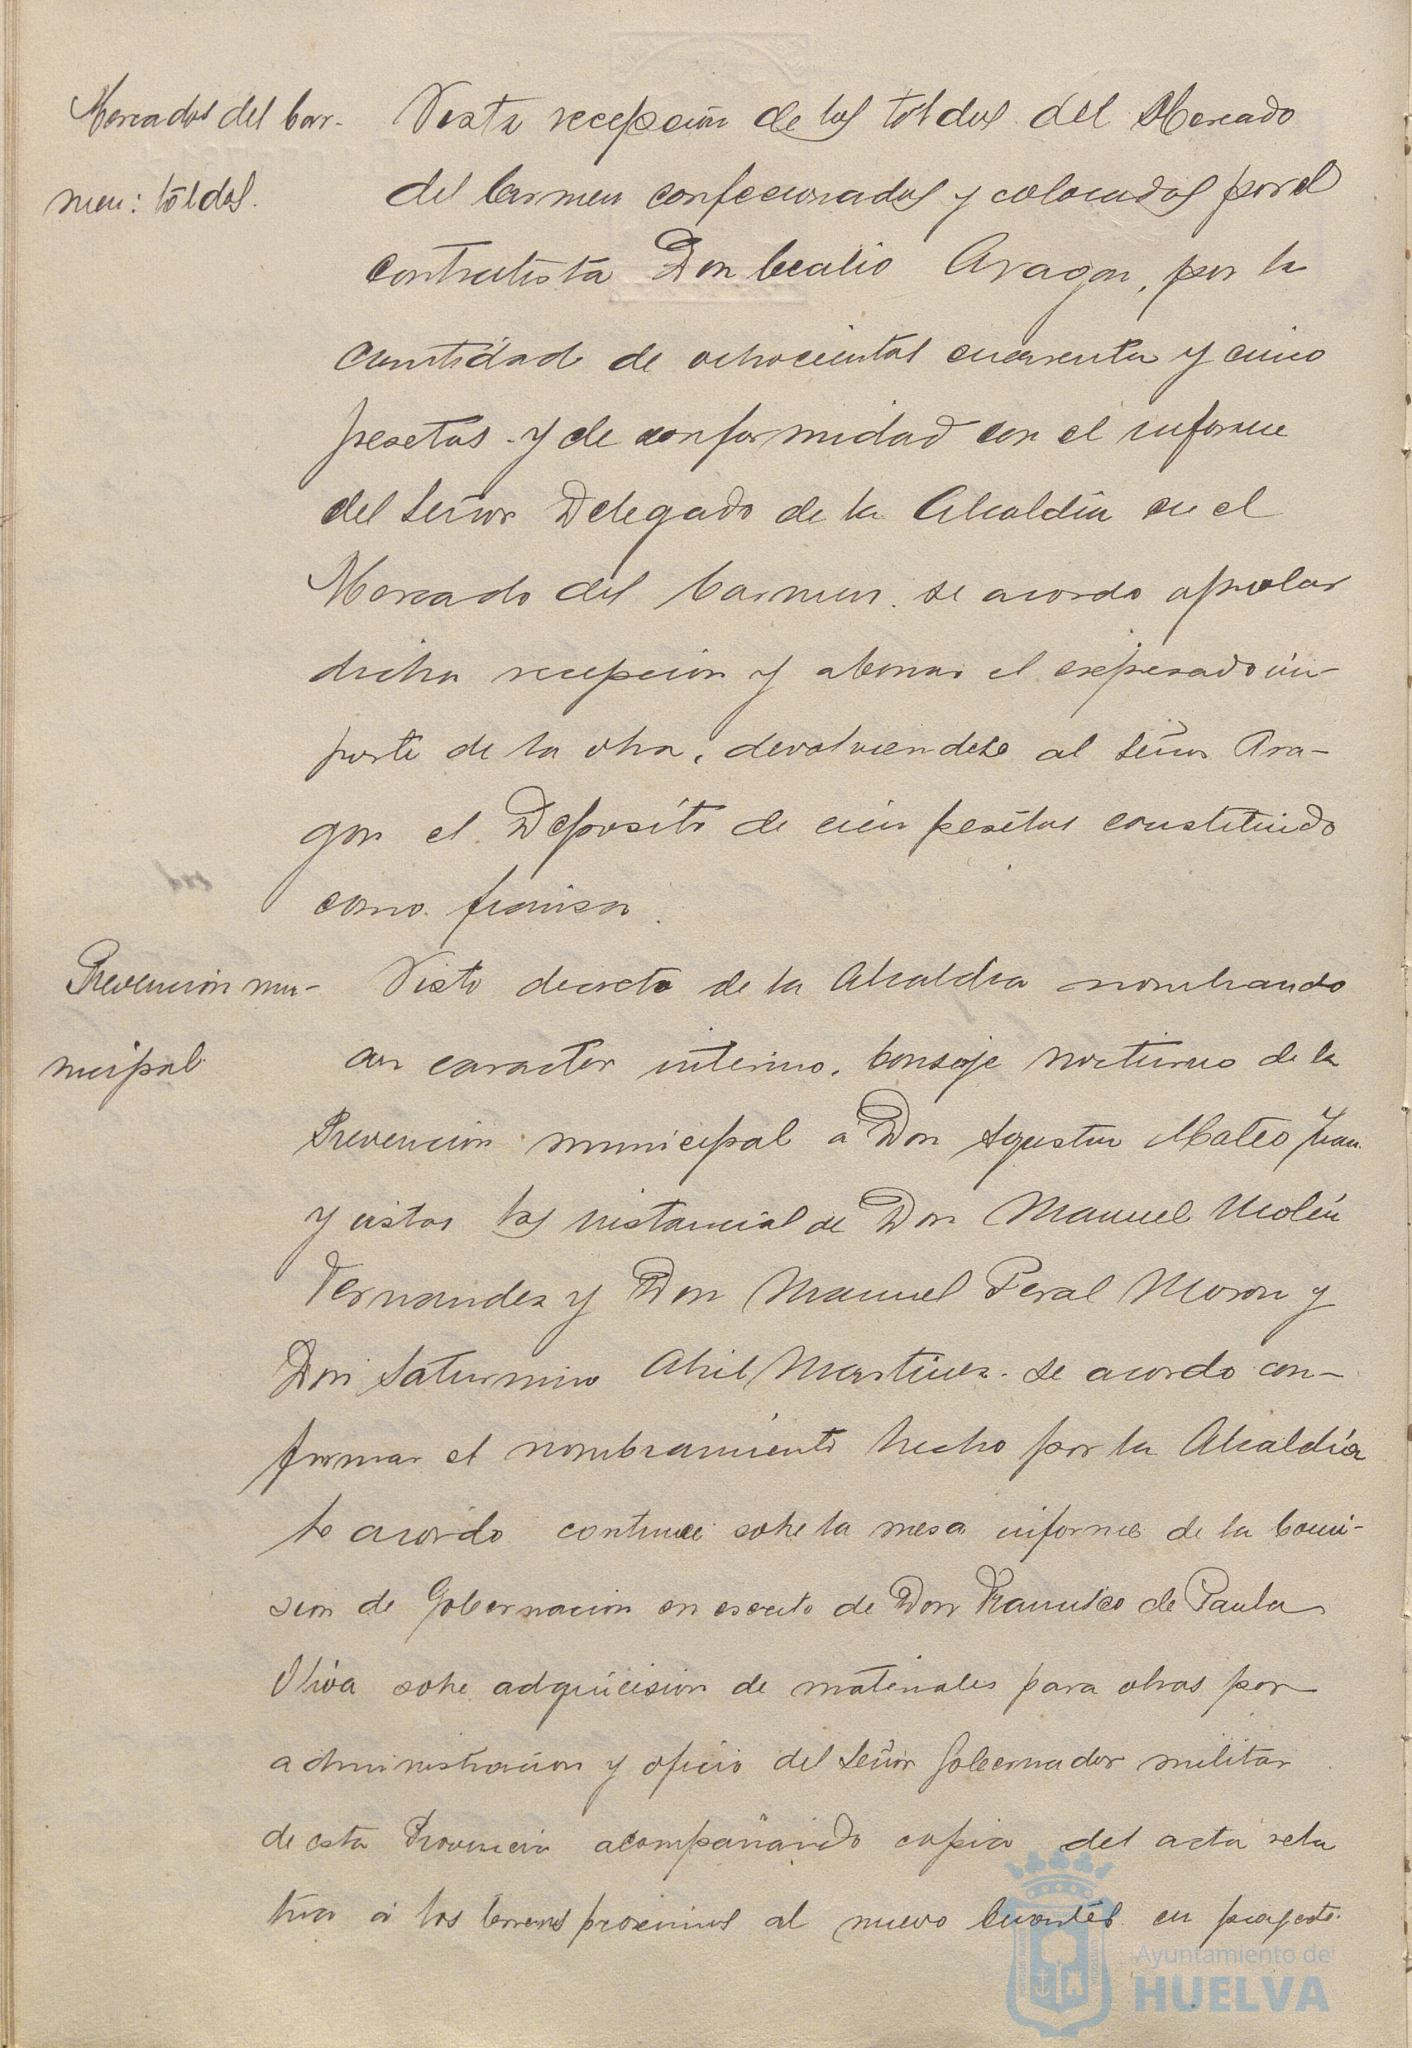 Mercados del Car-
men: tóldos.
Vista recepción de los tóldos del Mercado
del Carmen confeccionados y colocados por el
contratista Don Cecilio Aragon, por la
cantidad de ochocientas cuarenta y cinco
pesetas y de conformidad con el informe
del Señor Delegado de la Alcaldía en el
Mercado del Carmen. se acordo aprobar
dicha recepción y abonar el expresado im-
porte de la obra, devolviendose al Señor Ara-
gon el Deposito de cien pesetas constituido
como fianza.
Prevención mu-
nicipal
Visto decreto de la Alcaldía nombrando
con caracter interino, Conserje nocturno de la
Prevención municipal á Don Agustin Mateo Juan
y vistas las instancias de Don Manuel Molín
Fernandez y Don Manuel Peral Moron y
Don Saturnino Abril Martinez. se acordo con-
firmar el nombramiento hecho por la Alcaldía
Se acordo continue sobre la mesa informe de la Comi-
sion de Gobernacion en escrito de Don Francisco de Paula
Oliva sobre adquicision de materiales para obras por
administracion y oficio del Señor Gobernador militar
de esta Provincia acompañando copia del acta rela
tiva á los terrenos proximos al nuevo Cuartél en proyecto.
Ayuntamiento de
HUELVA